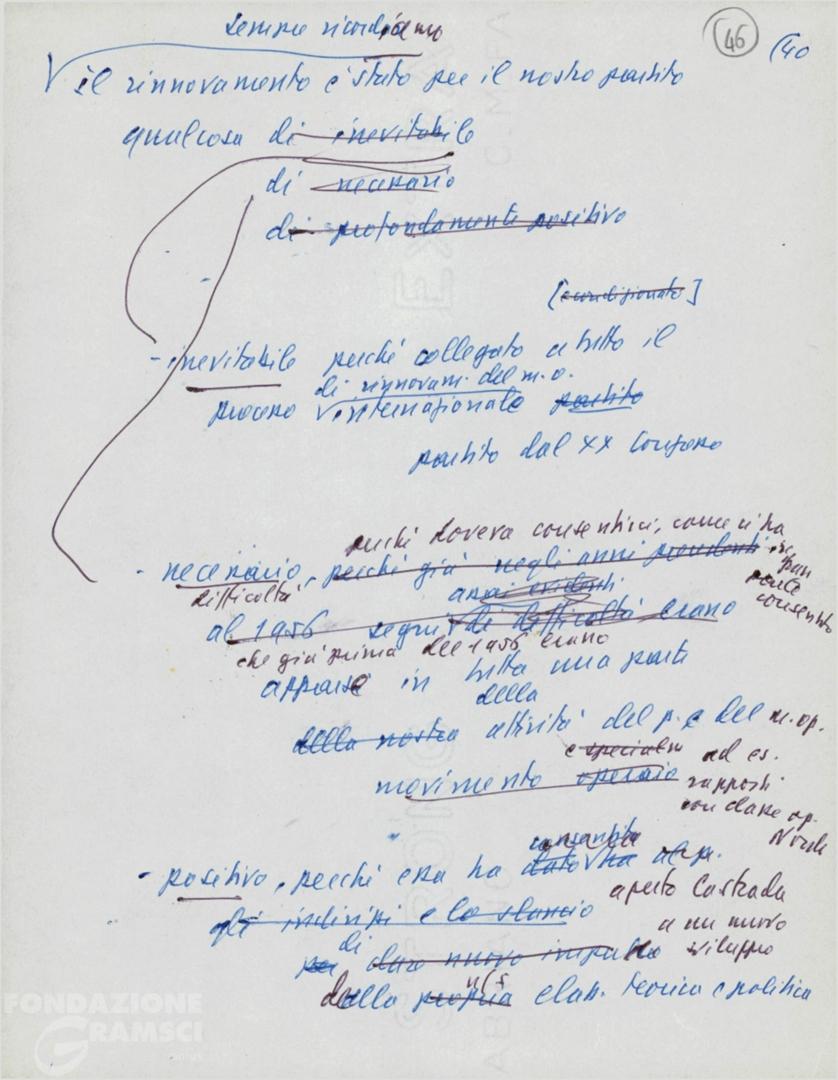 sempre ricordiamo
46
(40
il rinnovamento è stato per il nostro partito
qualcosa di inevitabile
di necessario
di profondamente positivo
[è condizionato]
- inevitabile perché collegato a tutto il
di rinnovam. del m.o.
processo internazionale partito
partito dal XX Congresso
perché doveva consentirci, come ci ha
- necessario, perché già negli anni precedenti in
parte
consentito
difficoltà assai evidenti
al 1956 segni di difficoltà erano
che già prima del 1956 erano
apparse in tutta una parte
della
della nostra attività del p. e del m. op.
e specialm ad es.
movimento operaio rapporti
con classe op.
Nord
consentito
- positivo, perché essa ha dato ha al p.
aperto la strada
gli indirizzi e lo slancio a un nuovo
per di dare nuovo impulso sviluppo
della propria elab. teorica e politica
FONDAZIONE
GRAMSCI